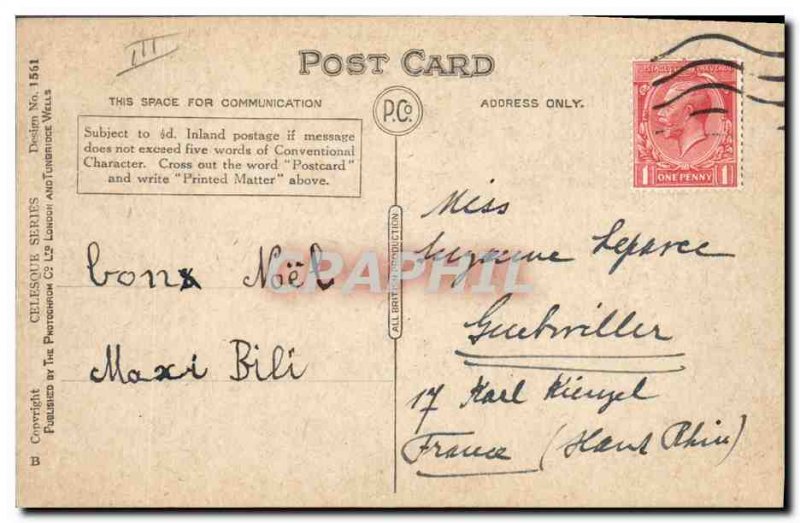 POST CARD
THIS SPACE FOR COMMUNICATION
P.Co.
ADDRESS ONLY.
Subject to ½d. Inland postage if message
does not exceed five words of Conventional
Character. Cross out the word "Postcard"
and write "Printed Matter" above.
bon Noël
Maxi Bili
Miss
Suzanne Leparce
Guebwiller
17 Karl Kienzel
France (Haut Rhin)
ALL BRITISH PRODUCTION
1 ONE PENNY 1
CPAPHIL
B Copyright CELESQUE SERIES Design No. 1561
PUBLISHED BY THE PHOTOCHROM CO LTD LONDON AND TUNBRIDGE WELLS